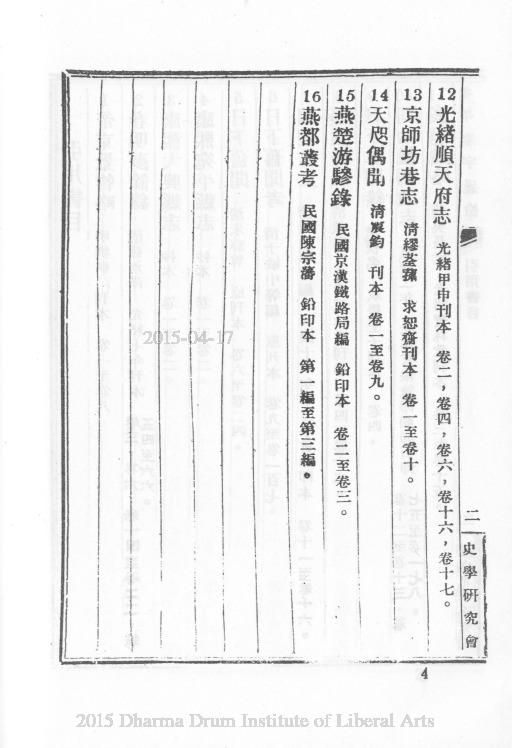 12光緒順天府志 光緒甲申刊本 卷二，卷四，卷六，卷十六，卷十七。
13京師坊巷志 清繆荃蓀 求恕齋刊本 卷一至卷十。
14天咫偶聞 清震鈞 刊本 卷一至卷九。
15燕楚游驂錄 民國京漢鐵路局編 鉛印本 卷二至卷三。
16燕都叢考 民國陳宗藩 鉛印本 第一編至第三編。
二
史學研究會
4
2015-04-17
2015 Dharma Drum Institute of Liberal Arts